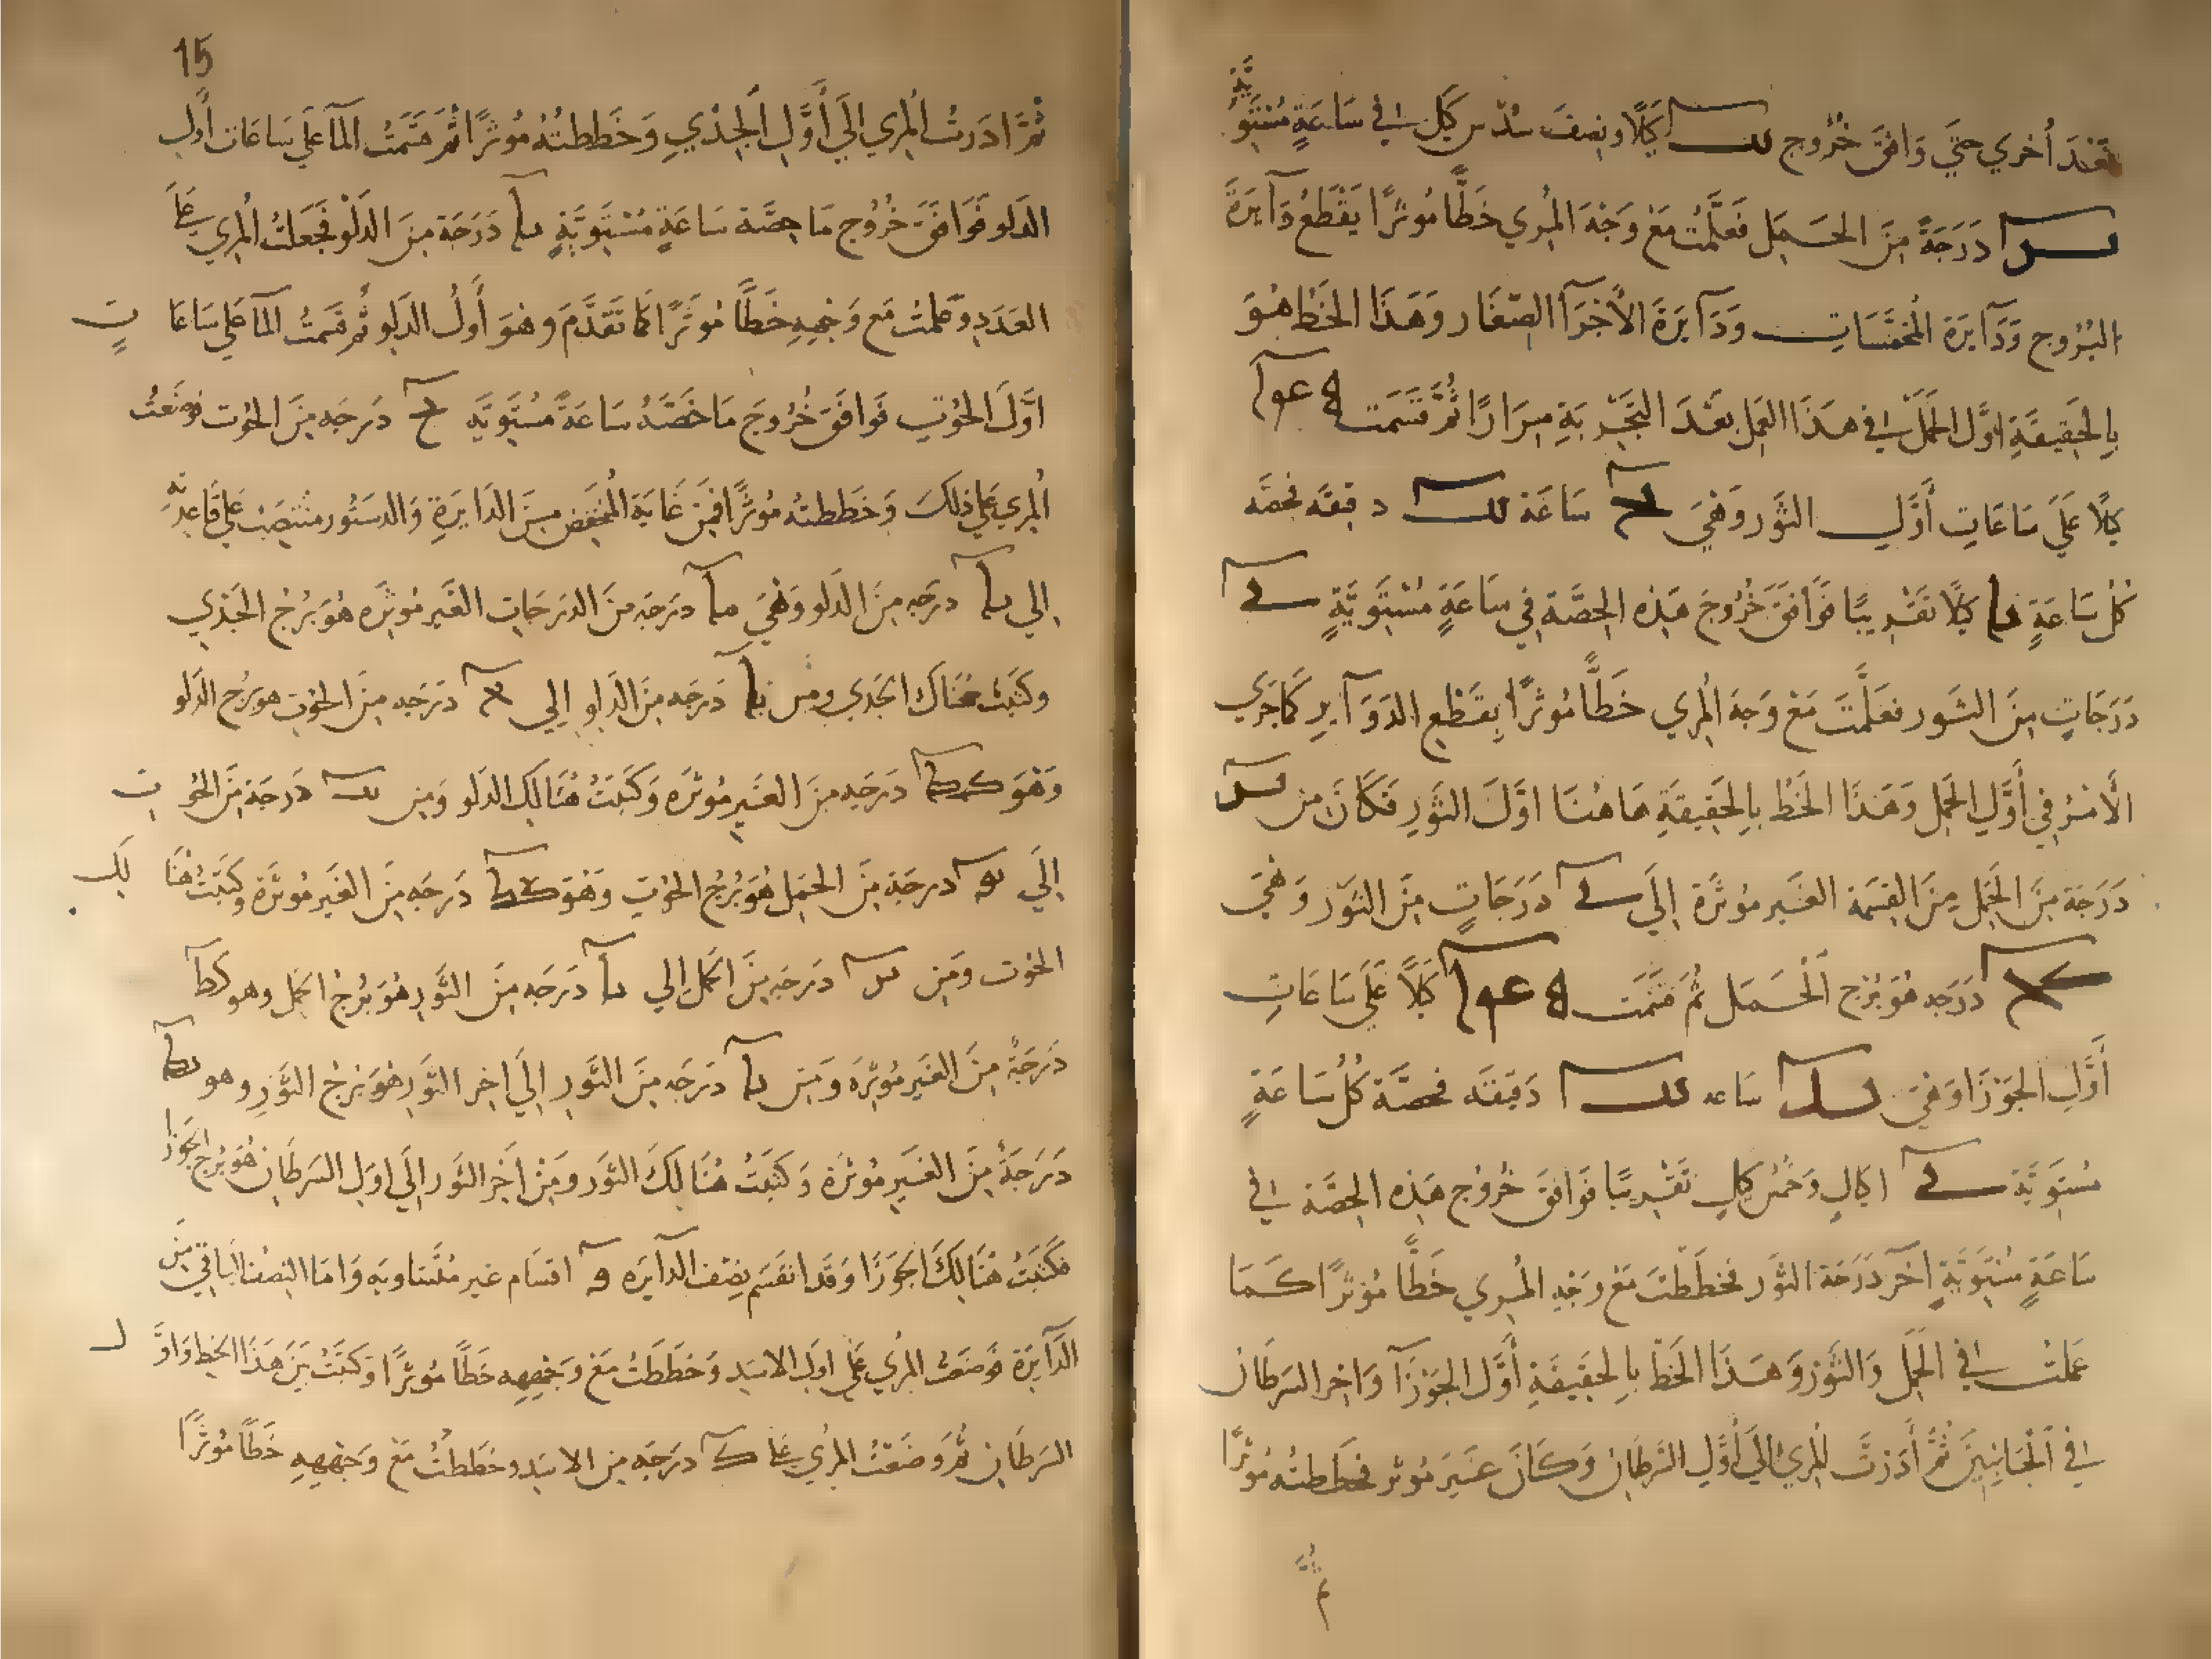 بَعْدَ أُخري حتَّي وَافقَ خُرُوج كَيلًا ونِصفَ سُدْس كَيل في سَاعَةٍ مُسْتَوِيَّةٍ
دَرَجَةً مِنَ الحَمَل فَعَلَّمْتُ مَعْ وَجْهَ المُري خَطًّا مُوثرًا يَقْطَعُ دَآيرَةَ
البُرُوج وَدَآيرَة الخمسَات وَدَآيرَةَ الأجزَآ الصِّغَار وَهَذَا الخَطُ هُوَ
بِالحَقِيقَةِ اوَّل الحَمَل في هَذَا العَمل بَعْدَ التَّجْرِبَةِ مِرَارًا ثُمَّ قَسَمَت
كَيلًا عَلَي سَاعَاتِ أوَّلِ الثَّور وَهْيَ سَاعَة دقيقَه فحصّه
كُل سَاعَةٍ كَيلًا تَقْرِيبًا فوَافقَ خُرُوجَ هَذِه الحِصَّة في سَاعَةٍ مُسْتَوِيَّةٍ
دَرَجَاتٍ مِنَ الثَور فعَلَّمتَ مَعْ وَجهَ المُري خَطًّا مُوثرًا بِقَطعِ الدَوَآيرِ كَمَا جَرَي
الأَمْرُ في أوَّلِ الحَمل وَهَذَا الخَطُ بِالحَقِيقَةِ هَاهُنَا اوَّلَ الثَورِ فَكَانَ من
دَرَجَة مِنَ الحَمَل مِنَ القِسْمَة الغَير مُوثَرَة إلَي دَرَجَاتٍ مِنَ الثَوْر وَهيَ
دَرَجَه هُوَ بُرْج الْحَمَل ثُمَّ قَسَمَت كَيلًا عَلَي سَاعَاتِ
أَوَّلِ الجَوْزَا وَهيَ سَاعه دَقيقَه فحِصَّة كُلْ سَاعَةٍ
مُستَوِيَّة اكيَالٍ وَخُمْسَ كَيلٍ تَقْرِيبًا فوَافقَ خُرُوج هَذِه الحِصَّة في
سَاعَةٍ مُسْتَوِيَّةٍ آخر دَرَجَة الثَوْر فخَطَطْتَ مَعْ وَجْهِ المُري خَطًّا مُوثرًا كَمَا
عَملتُ في الحَمَل وَالثَوْر وَهَذَا الخَطُ بِالحَقِيقَةِ أوَّل الجَوْزَآ وَاخِر السَرَطَان
في الْجَانِبينَ ثُمَّ أَدَرْتَ المُري إلَي أوَّلِ السَّرَطَانِ وَكَانَ غَيرَ مُوثر فخَططتُه مُوثرًا
ثُمَّ
15
ثُمَّ ادَرتُ المُري الَي أوَّلِ الجَدْي وَخَططتُهُ مُوثرًا ثُمَّ قَسَمَتُ المآ عَلَي سَاعَات أولِ
الدَلو فَوَافَقَ خُرُوج مَا حِصَّة سَاعَةٍ مُسْتَوِيَّةٍ دَرَجَة مِنَ الدَلْو فجَعَلتُ المُري عَلَي
العَدَدِ وعلمتُ مَع وَجْهِهِ خَطًّا مُوثرًا كمَا تَقَدَّمَ وهوَ أوَّلُ الدَلِو ثُم قسَمتُ المآ عَلي سَاعَات
اوَّلَ الحُوتِ فَوافَقَ خُرُوجَ مَا حَصَّهُ سَاعَةً مُستَوِيَه دَرجَه مِنَ الحُوت فوَضَعتُ
المُري عَلي ذلكَ وَخَططتُه مُوثرًا فمِن غَايَة المُنخَفض مِنَ الدَايرَةِ وَالدستُور منتصَب عَلي قَاعِدَتِه
إلي دَرَجَه مِنَ الدَلو وَهْيَ دَرَجَه منَ الدرجَات الغَير مُوثرَه هُوَ بُرْجُ الجَدْي
وكتَبتُ هُنَاكَ الجَدي ومن دَرَجَه مِنَ الدَلو إلي دَرَجَه مِنَ الحُوت هو بُرج الدَلو
وَهْوَ دَرَجَه مِنَ الغَير مُوثرَه وَكتَبتُ هُنَالِكَ الدَلو وَمِن دَرَجَة مِنَ الحُوت
إلَي دَرجَة مِنَ الحَمَل هُوَ بُرْجُ الحُوتِ وَهْوَ دَرجَه مِنَ الغَير مُوثرَة وكتَبتُ هُنَالكَ
الحُوت ومَنِ دَرَجَه مِنَ الحَمَل إلي دَرَجَه مِنَ الثَورِ هُوَ بُرْجُ الحمل وهو
دَرجَةُ مِنَ الغَيرِ مُوثرَه وَمَن دَرَجَه مِنَ الثَورِ إلَي اخِر الثَورِ هُوَ بُرجُ الثَورِ وهو
دَرَجَةً مِنَ الغَيرِ مُوثرَة وَكتَبتُ هُنَالكَ الثَور ومَنْ اخِر الثَور إلَي اوَّل السَرَطَانِ هُوَ بُرج الجَوزا
فكَتَبتُ هُنَالكَ الجوزَا وَقَد انقَسَم نِصْف الدآيرَه اقسَام غير مُتَسَاويَه وَامَا النِصْفُ البَاقي مِنَ
الدَآيرَة فوَضعتُ المُري عَلي اولِ الاسَدِ وَخطَطتُ مَعْ وَجْهِه خَطًا مُوثرًا وَكتَبتُ بَينَ هَذَا الخط وَاوَّل
السَرَطَانِ ثُم وَضَعْتُ المُري عَلي دَرَجَه مِن الاسَد وخَططتُ مَعْ وَجْهِهِ خَطًا مُوثرًا